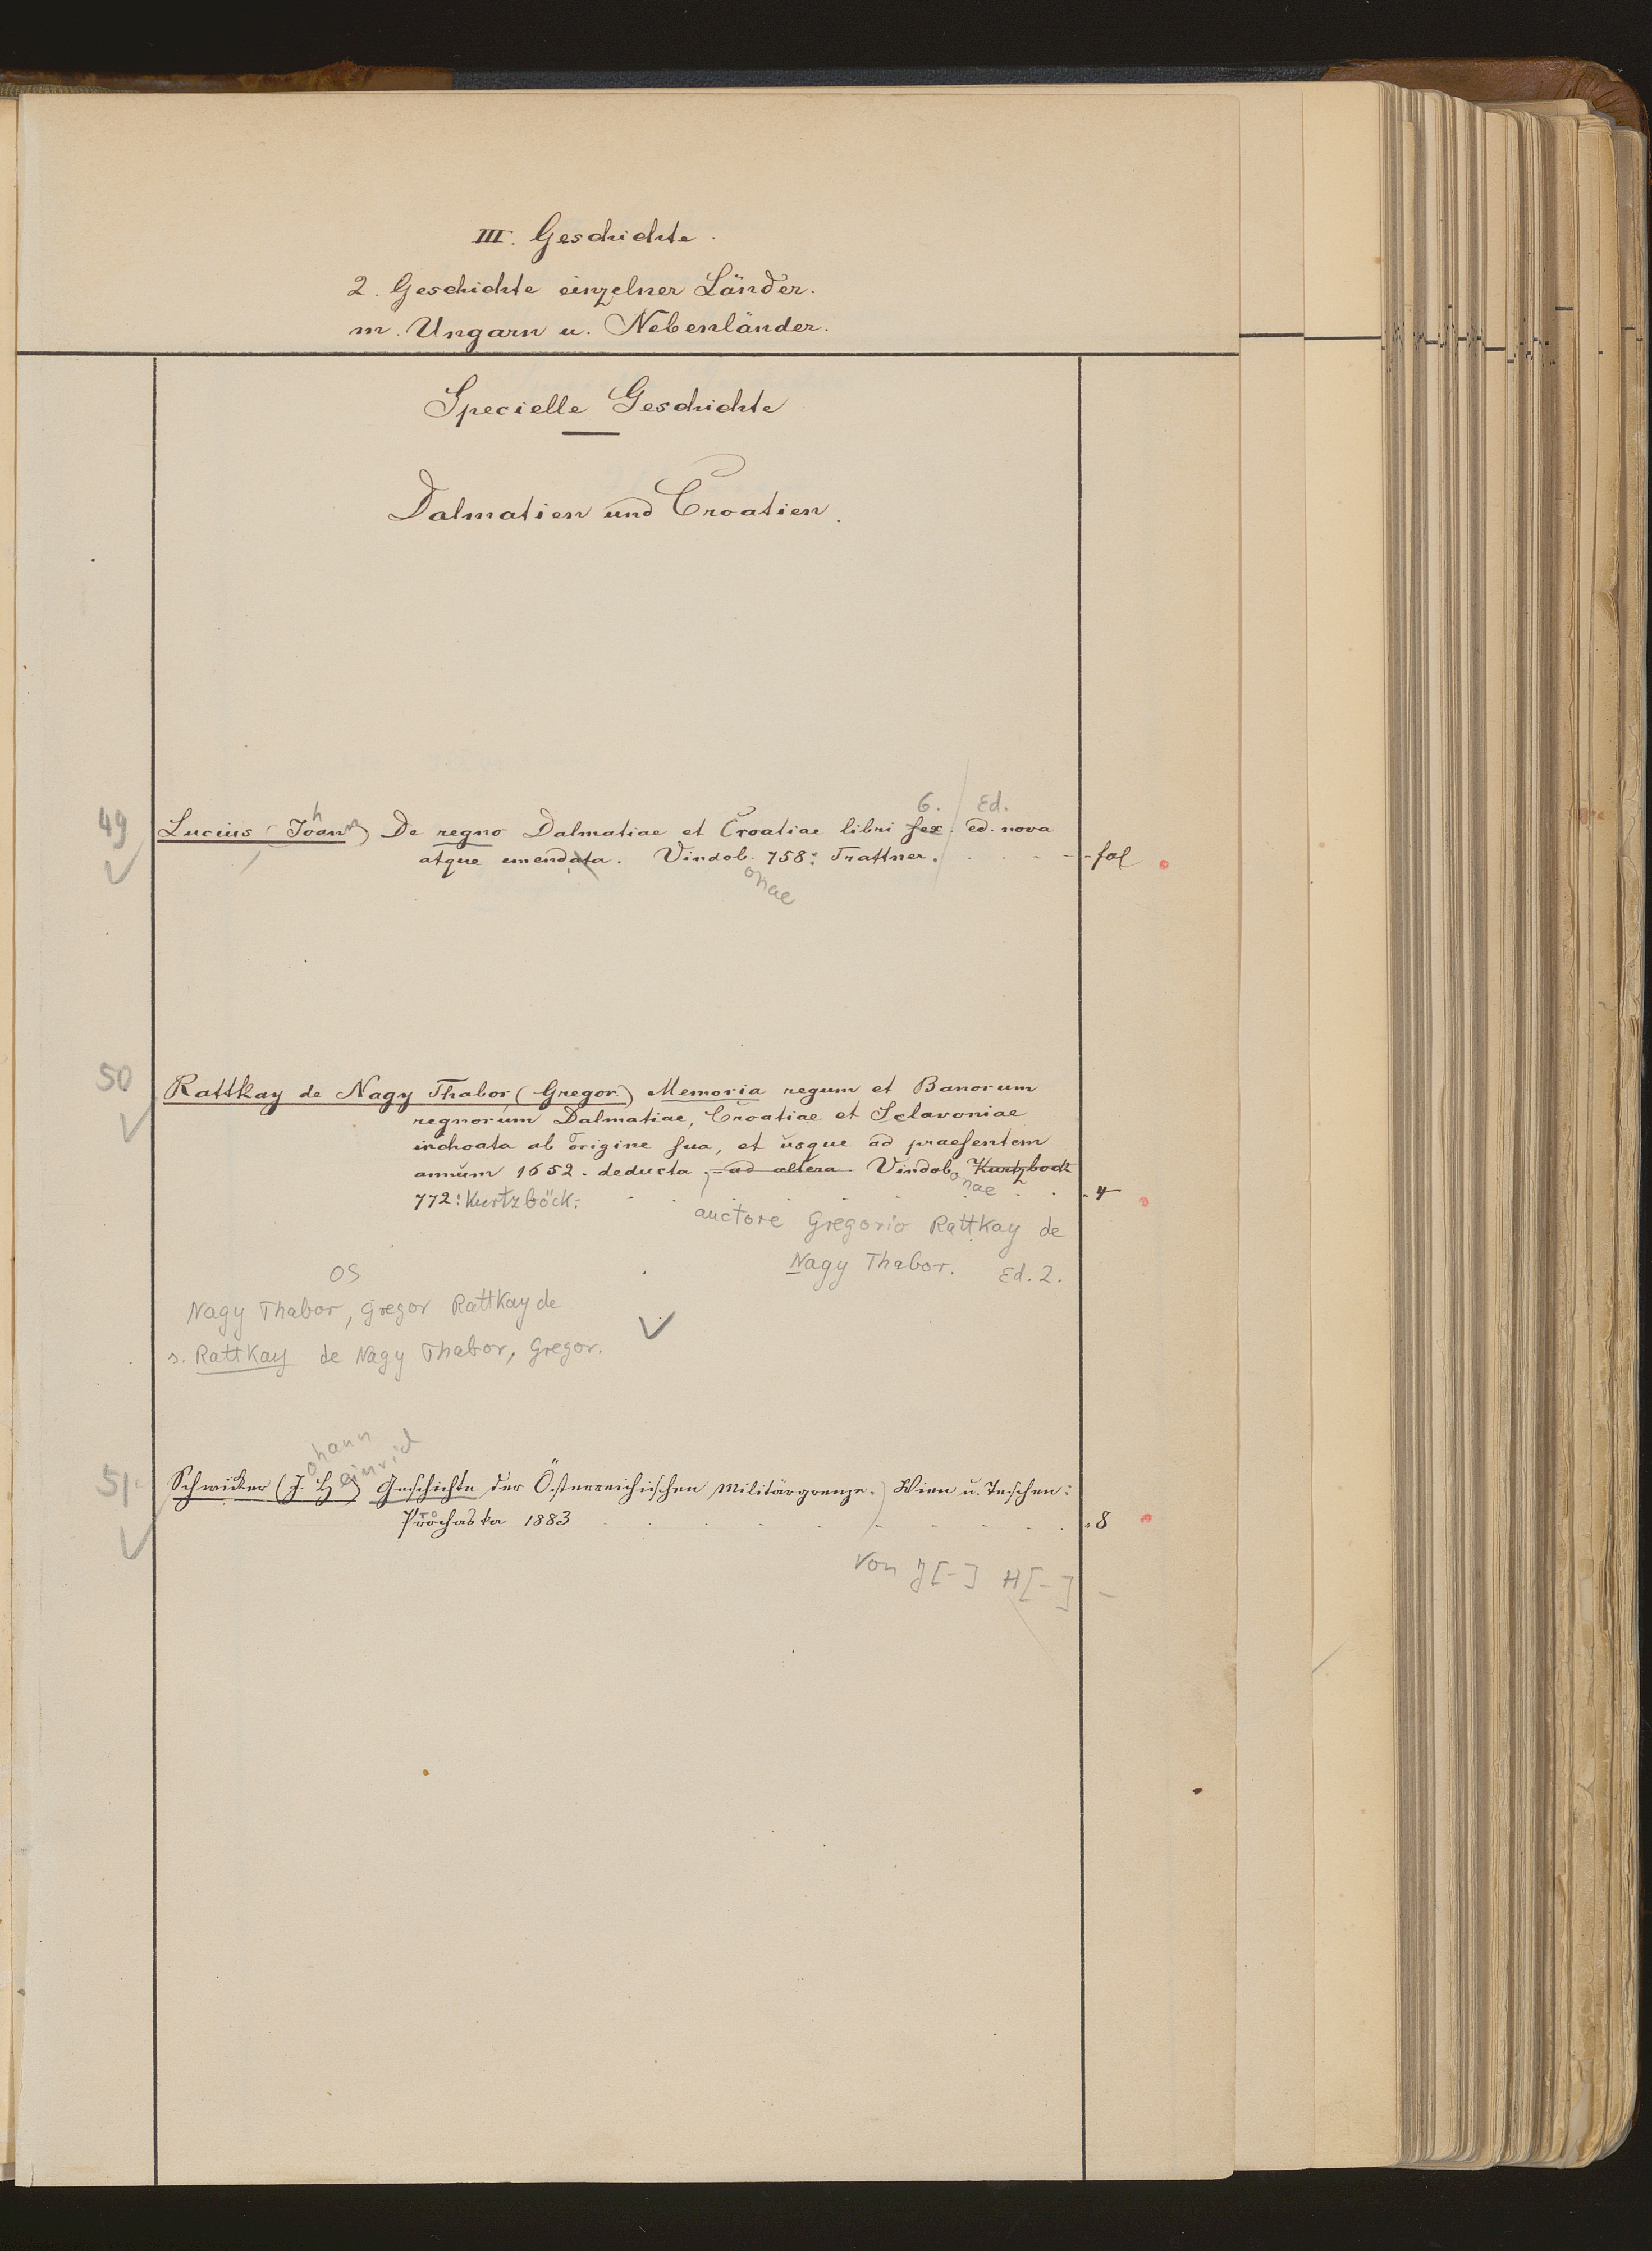 III. Geschichte.
2. Geschichte einzelner Länder.
m. Ungarn u. Nebenländer.
Specielle Geschichte
Dalmatien und Croatien.
h 6. Ed.
49 Lucius (Joan) De regno Dalmatiae et Croatiae libri sex. ed. nova
atque emendata. Vindob. 758: Trattner. fol
onae
50 Rattkay de Nagy Thabor (Gregor.) Memoria regum et Banorum
regnorum Dalmatiae, Croatiae et Sclavoniae
inchoata ab origine sua, et usque ad praesentem
annum 1652. deducta, ad altera. Vindob. Kurtzbock
onae
772: Kurtzböck. 4
auctore Gregorio Rattkay de
Nagy Thabor. Ed. 2.
OS
Nagy Thabor, Gregor Rattkay de
s. Rattkay de Nagy Thabor, Gregor.
ohann einrich
51 Schwicker (J. H.) Geschichte der Österreichischen Militärgrenze. Wien u. Teschen:
Prochaska 1883 8
Von J[-] H[-] -